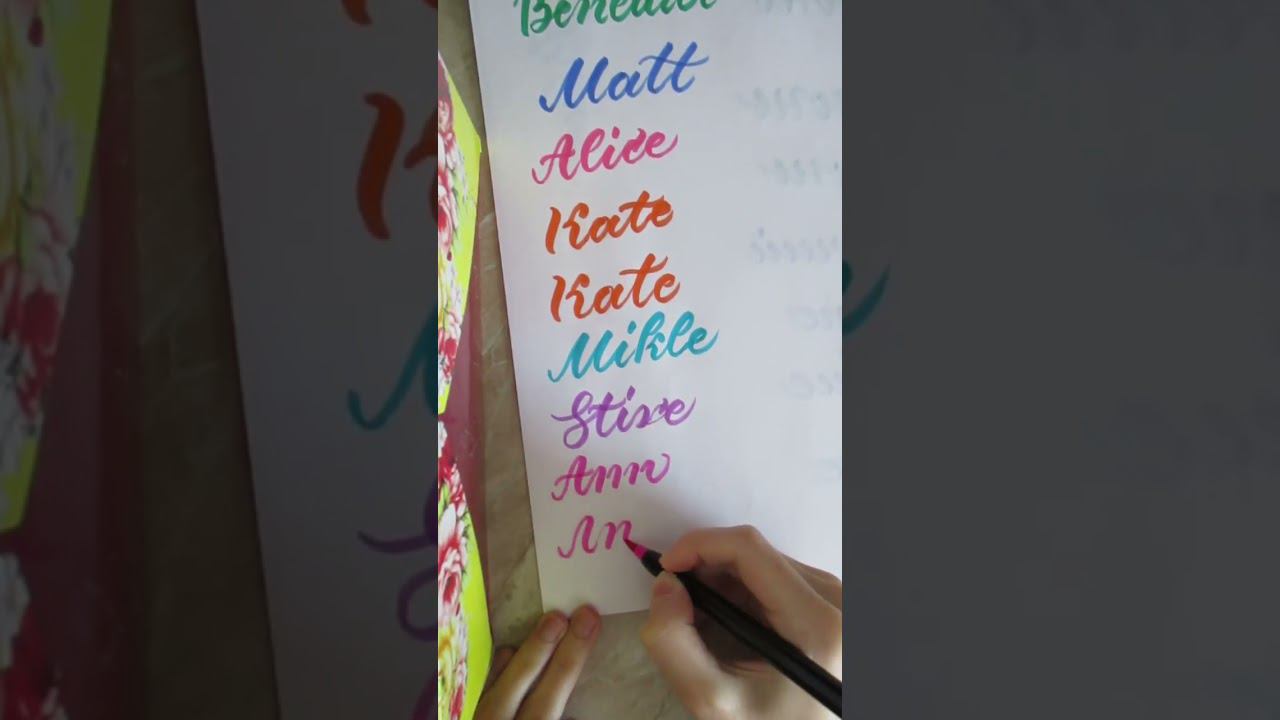 Benedict
Matt
Alice
Kate
Kate
Mikle
Stive
Ann
An